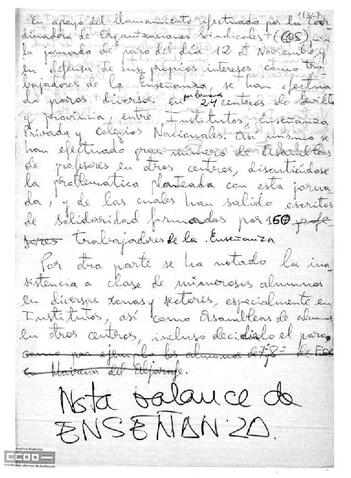 En apoyo del llamamiento efectuado por la Coor-
dinadora de Organizaciones Sindicales (COS), para
la jornada de paro del dia 12 de Noviembre y
en defensa de sus propios intereses como tra-
bajadores de la Enseñanza se han efectua
do paros diversos en 24 centros de Sevilla
y provincia, entre Institutos, Enseñanza
Privada y Colegios Nacionales. Asi mismo se
han efectuado gran numero de Asambleas
de profesores en otros centros, discutiendose
la problematica planeada con esta jorna
da, y de las cuales han salido escritos
de solidaridad formadas por 160 profe-
sores trabajadores de la Enseñanza
Por otra parte se ha notado la ina
sistencia a clase de numerosos alumnos
en diversas zonas y sectores, especialmente en
Institutos, asi como Asambleas de alumnos
en otros centros, incluso decidido el paro,
como por ejemplo los alumnos de 7, 8 de EGB
Mairena del Aljarafe.
Nota balance de
ENSEÑANZA.
ccoo